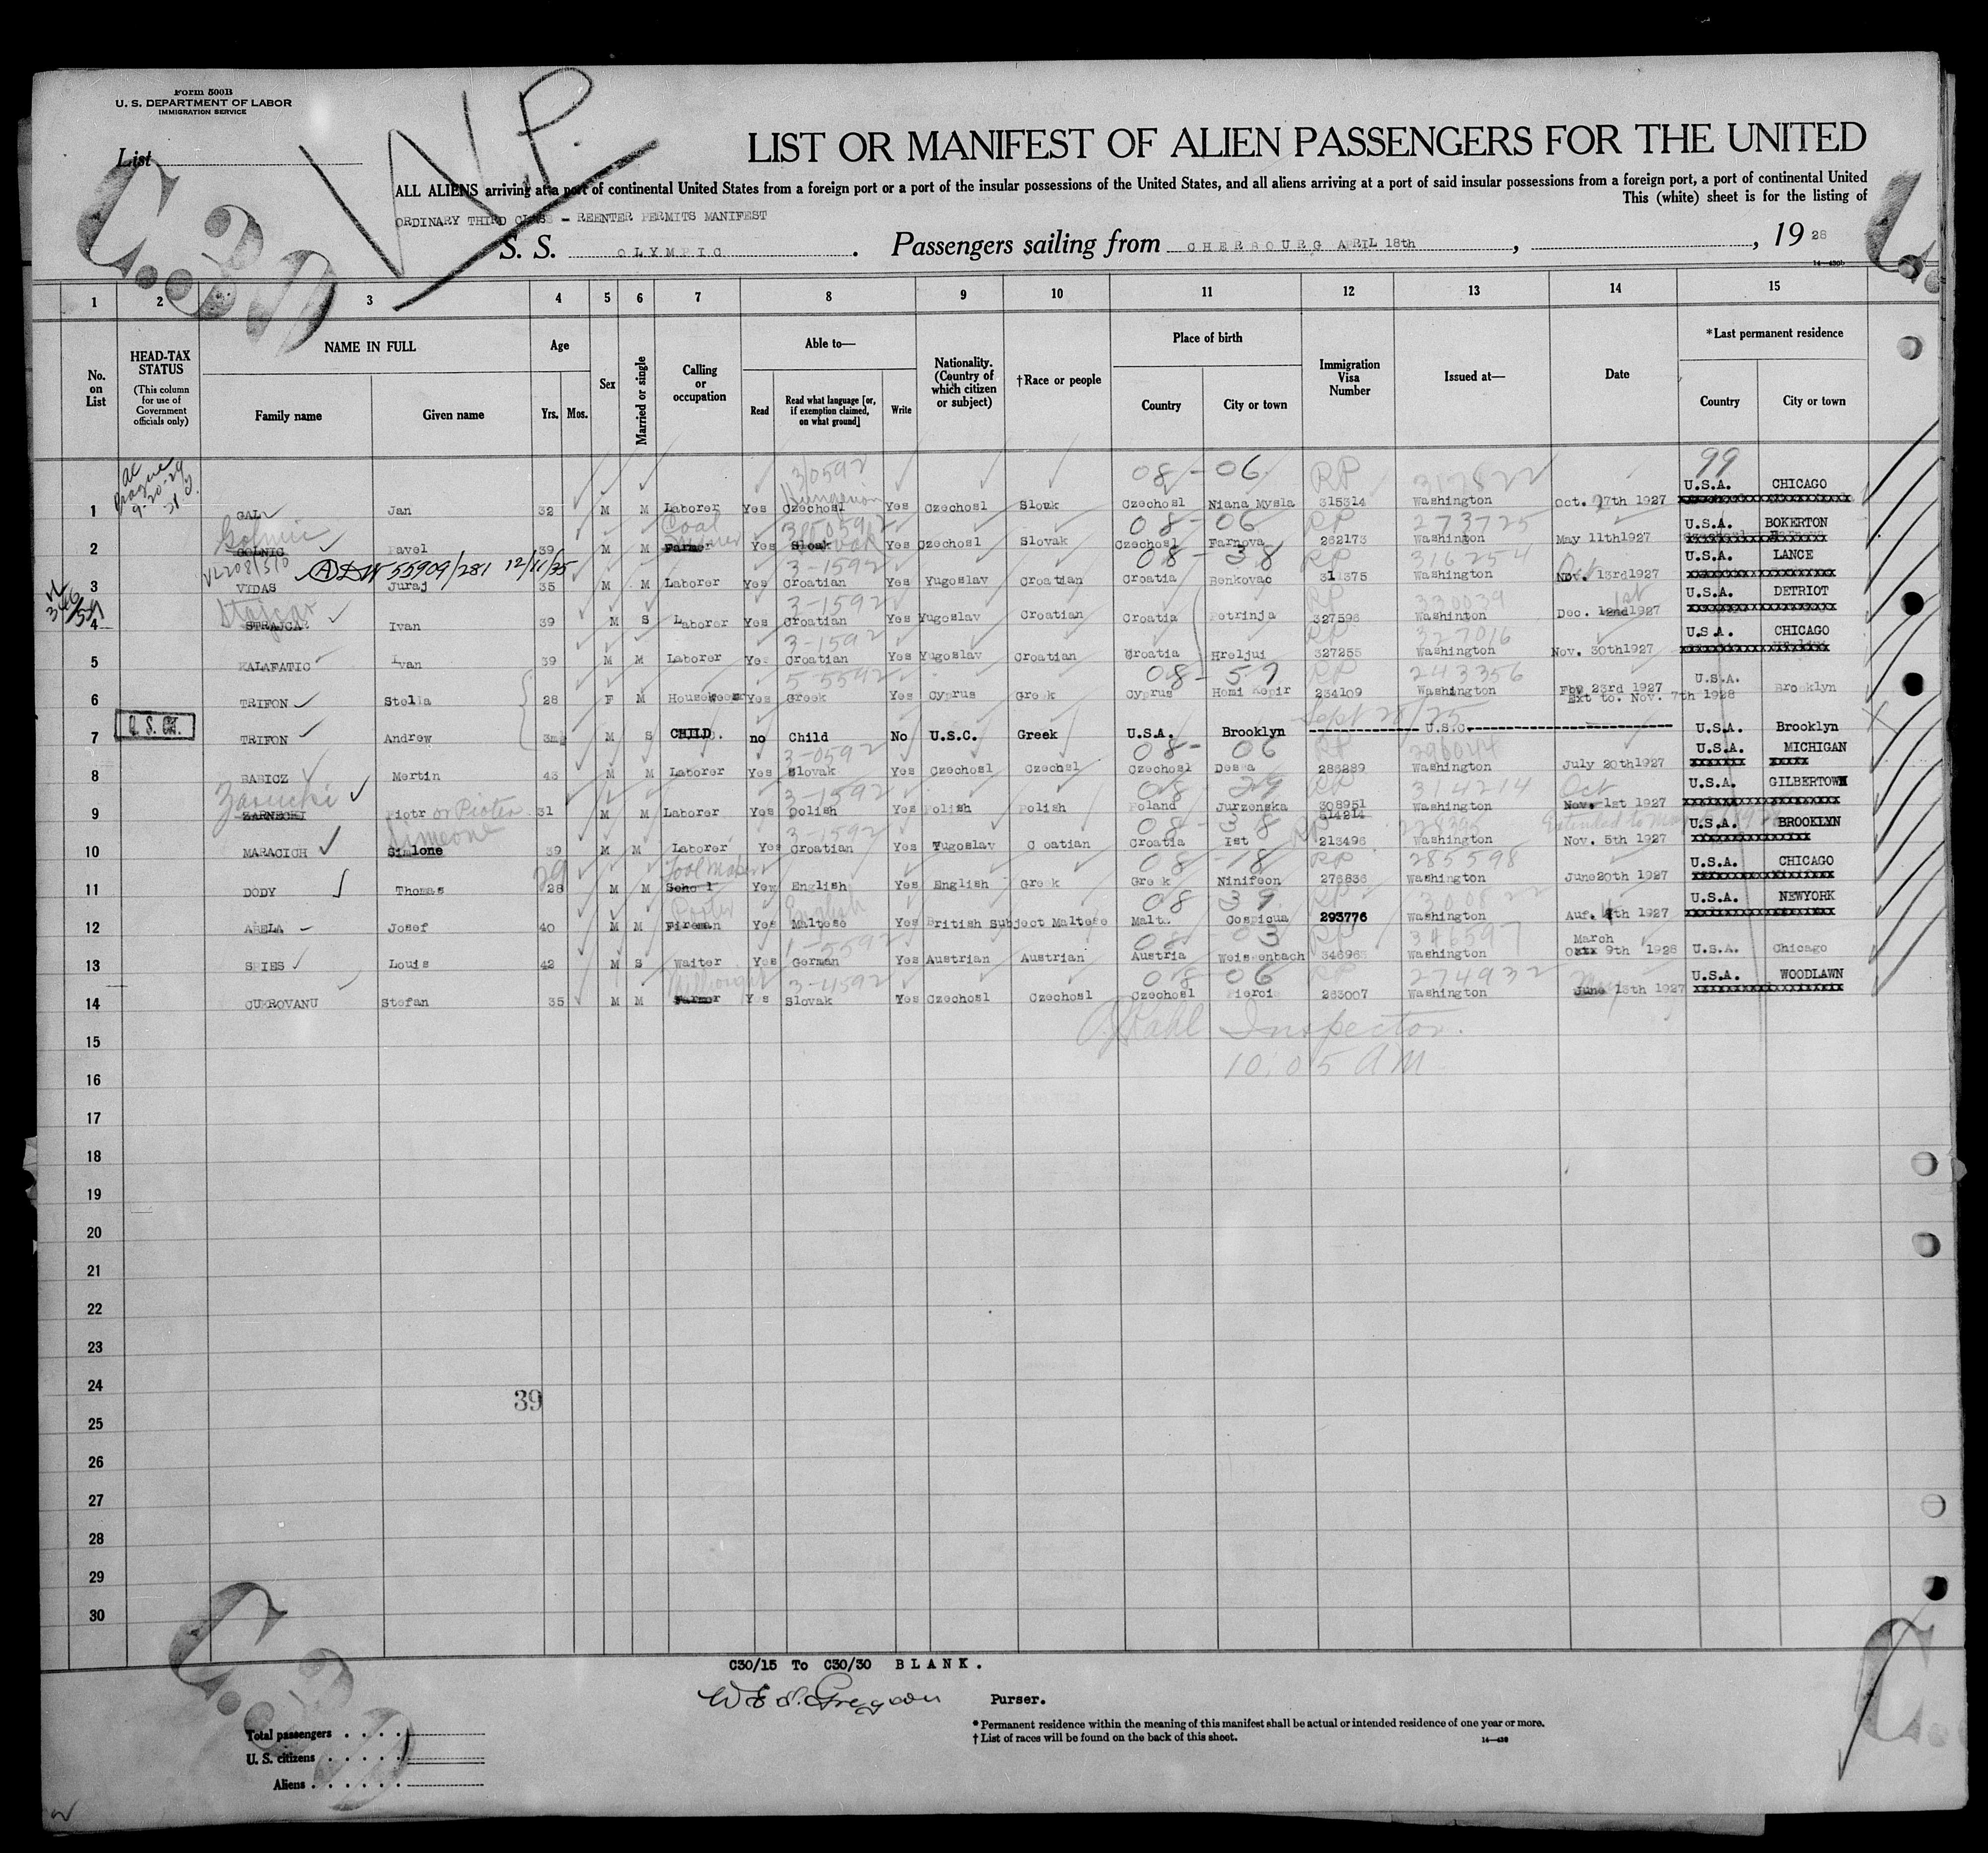 Form 500B
U. S. DEPARTMENT OF LABOR
IMMIGRATION SERVICE
List
N.P.
C. 30
LIST OR MANIFEST OF ALIEN PASSENGERS FOR THE UNITED
ALL ALIENS arriving at a port of continental United States from a foreign port or a port of the insular possessions of the United States, and all aliens arriving at a port of said insular possessions from a foreign port, a port of continental United
This (white) sheet is for the listing of
ORDINARY THIRD CLASS - REENTER PERMITS MANIFEST
S. S. OLYMPIC. Passengers sailing from CHERBOURG APRIL 18th, , 19 28
14—430b
1 2 3 4 5 6 7 8 9 10 11 12 13 14 15
No. on List
HEAD-TAX STATUS (This column for use of Government officials only)
NAME IN FULL
Family name Given name
Age
Yrs. Mos.
Sex
Married or single
Calling or occupation
Able to—
Read Read what language [or, if exemption claimed, on what ground] Write
Nationality. (Country of which citizen or subject)
†Race or people
Place of birth
Country City or town
Immigration Visa Number
Issued at—
Date
*Last permanent residence
Country City or town
Prague 9-20-29
3/0592 08 - 06 RP 317822 99
1 GAL Jan 32 M M Laborer Yes Hungarian Czechosl Yes Czechosl Slouk Czechosl Niana Mysla 315314 Washington Oct. 27th 1927 U.S.A. CHICAGO
Golnic Coal Miner 3/50592 08 - 06 RP 273725
2 GOLNIG Pavel 39 M M Farmer Yes Sloak Slovak Yes Czechosl Slovak Czechosl Farnova 262173 Washington May 11th1927 U.S.A. BOKERTON
VL208/310 A DW 55909/281 12/11/35 3-1592 08 - 38 RP 316254 Oct
3 VIDAS Juraj 35 M M Laborer Yes Croatian Yes Yugoslav Croatian Croatia Benkovac 311375 Washington Nov. 13rd1927 U.S.A. LANCE
346/551 Stajcar 3-1592 RP 330039 1st
4 STRAJCAR Ivan 39 M S Laborer Yes Croatian Yes Yugoslav Croatian Croatia Petrinja 327596 Washinton Dec. 12nd1927 U.S.A. DETRIOT
3-1592 RP 327016
5 KALAFATIC Ivan 39 M M Laborer Yes Croatian Yes Yugoslav Croatian Croatia Hreljui 327255 Washington Nov. 30th1927 U.S.A. CHICAGO
5-5592 08 - 57 RP 243356
6 TRIFON Stella 28 F M Housekeeper Yes Greek Yes Cyprus Greek Cyprus Homi Kepir 234109 Washington Fby 23rd 1927 U.S.A. Brooklyn
Ext to. Nov. 7th 1928
U. S. Cit. Sept 28/25
7 TRIFON Andrew 3 M S CHILD. no Child No U.S.C. Greek U.S.A. Brooklyn U.S.C. U.S.A. Brooklyn
3-0592 08 - 06 RP 296044
8 BABICZ Mertin 43 M M Laborer Yes Slovak Yes Czechosl Czechsl Czechosl Deswa 286289 Washington July 20th1927 U.S.A. MICHIGAN
Zarucki 3-1592 08 - 29 RP 314214 Oct
9 ZARNECKI Piotr or Pioter 31 M M Laborer Yes Polish Yes Polish Polish Poland Jurzenska 308951 Washington Nov. 1st 1927 U.S.A. GILBERTOWN
314214
Simeone 3-1592 08 - 38 RP 228395 Extended to
10 MARACICH Simlone 39 M M Laborer Yes Croatian Yes Yugoslav Croatian Croatia Ist 213496 Washington Nov. 5th 1927 U.S.A. BROOKLYN
29 Tool Maker 08 - 18 RP 285598
11 DODY Thomas 28 M M School Yes English Yes English Greek Greek Ninifeon 276836 Washington June20th 1927 U.S.A. CHICAGO
Porter English 08 39 RP 300822
12 ABELA Josef 40 M M Fireman Yes Maltese Yes British Subject Maltese Malta Cospicua 293776 Washington Auf. 4th 1927 U.S.A. NEWYORK
1-5592 08 - 03 RP 346597 March
13 SPIES Louis 42 M S Waiter Yes German Yes Austrian Austrian Austria Weissenbach 346965 Washington 9th 1928 U.S.A. Chicago
Millwright 3-4592 08 06 RP 274932 May
14 CUKROVANU Stefan 35 M M Farmer Yes Slovak Yes Czechosl Czechosl Czechosl Fieroic 263007 Washington June 13th 1927 U.S.A. WOODLAWN
15 Kahl Inspector.
16 10:05 AM
17
18
19
20
21
22
23
24
39
25
26
27
28
29
30
C30/15 To C30/30 BLANK.
W E S. Greggson Purser.
* Permanent residence within the meaning of this manifest shall be actual or intended residence of one year or more.
† List of races will be found on the back of this sheet.
14—430
C. 30
Total passengers
U. S. citizens
Aliens
C.